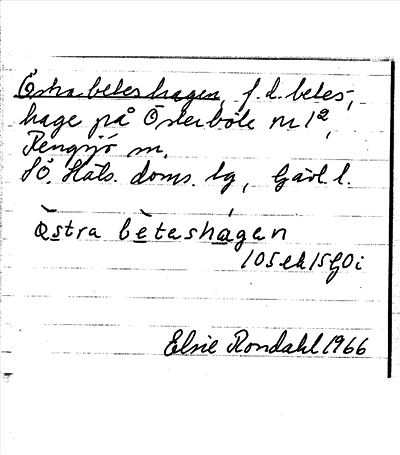 Östra beteshagen, f.d. betes-
hage på Österböle nr 1²,
Rengsjö sn,
SÖ. Häls. doms. lg, Gävl. l.
Östra beteshagen
10Sek15G0i
Elsie Rondahl 1966